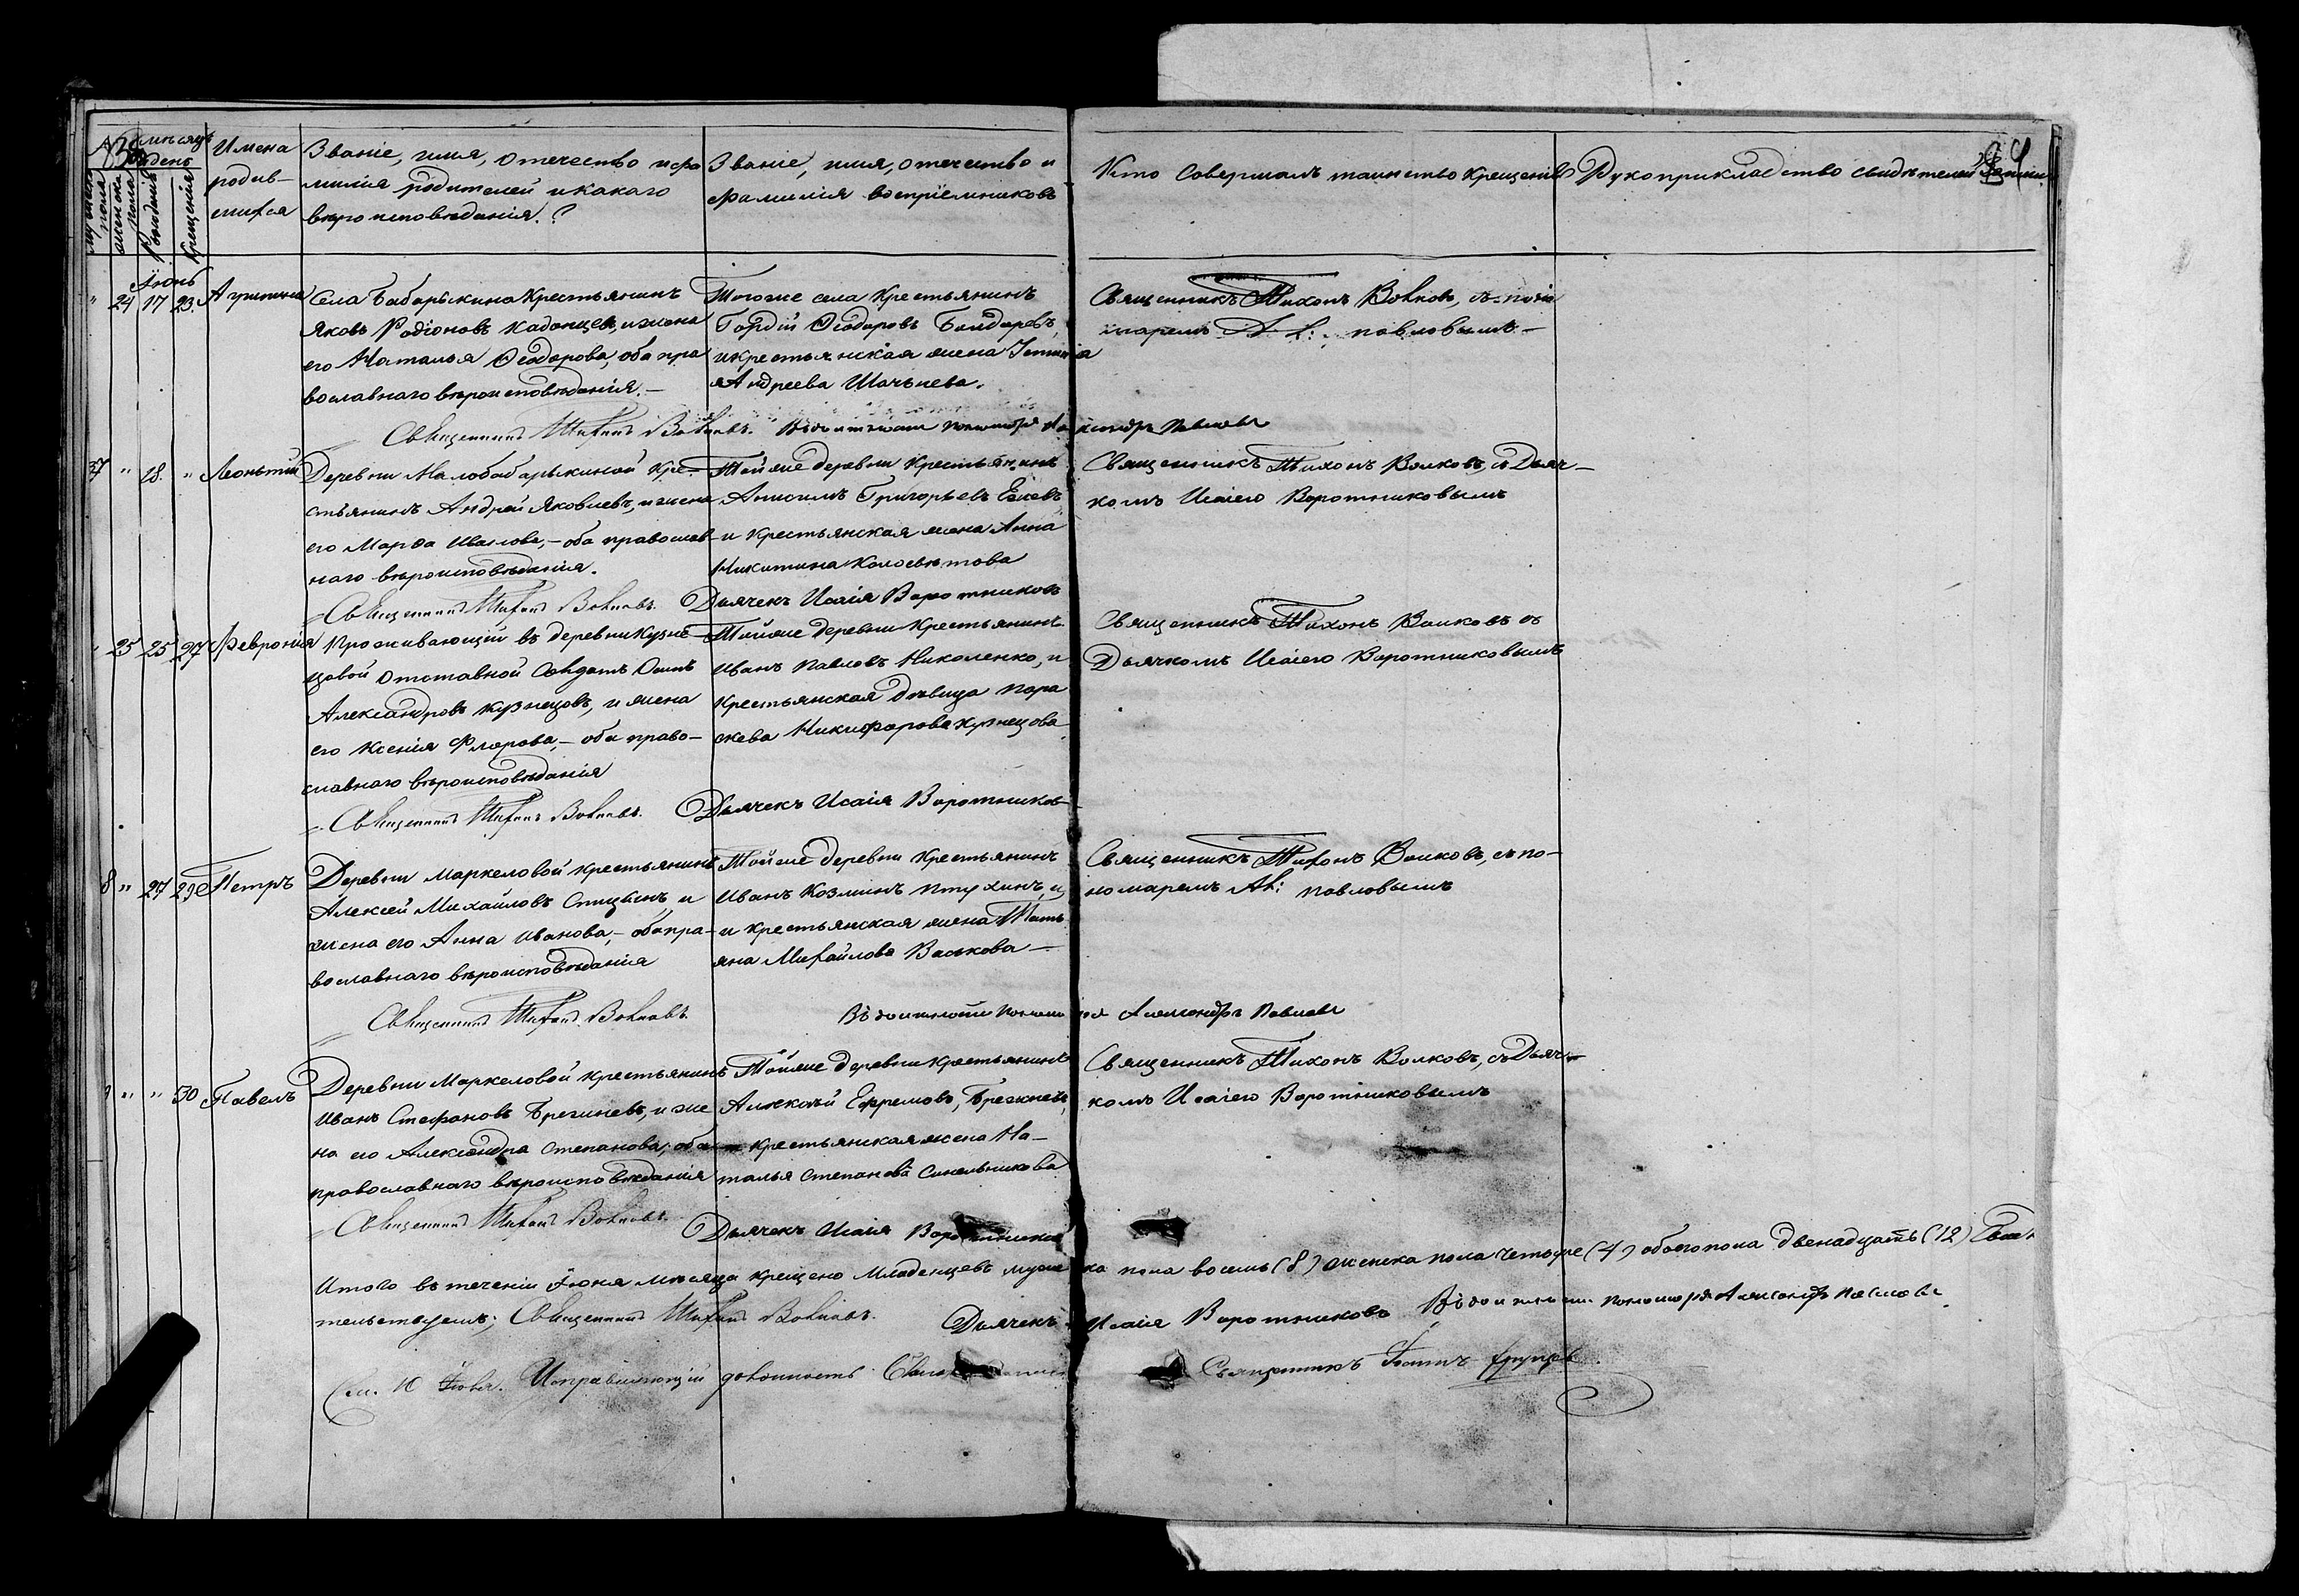 Мѣсяцъ и день
мужеска пола
женска пола
рожденія
крещенія
Имена родив-
шихся
Званіе, имя, отечество и фа
милія родителей и какаго
вѣроисповѣданія.?
Званіе, имя, отечество и
фамилія воспріемниковъ
Кто совершалъ таинство крещенія
Рукоприкладство свидѣтелей
Іюнь
" 24 17 23. Агрипина
Села Бабарыкина Крестьянинъ
Яковъ Родіоновъ Кадонцев, и жена
его Наталья Ѳеодорова, оба пра
вославнаго вѣроисповѣданія.—
Тогоже села Крестьянинъ
Гордій Ѳеодоровъ Бондаревъ,
и крестьянская жена
Андреева
Священникъ Тихонъ Волковъ, съ поно
маремъ Павловымъ—
Священникъ Тихонъ Волковъ. Въ должности пономаря Александръ Павловъ
37 " 18. " Леонтій
Деревни Малобабарыкиной Кре-
стьянинъ Андрей Яковлевъ, и жена
его Марѳа Иванова,— оба православ
наго вѣроисповѣданія.
Тойже деревни Крестьянинъ
Анисимъ Григорьевъ
и Крестьянская жена Анна
Никитина
Священникъ Тихонъ Волковъ, съ Дьяч—
комъ Исаіею Воротниковымъ
Священникъ Тихонъ Волковъ. Дьячекъ Исаія Воротниковъ
" 25 25 27 Февронія
Проживающій въ деревни Кузне—
цовой Отставной Солдатъ
Александровъ Кузнецовъ, и жена
его Ксенія Флорова,— оба право—
славнаго вѣроисповѣданія
Тойже деревни Крестьянинъ
Иванъ Павловъ Николенко, и
крестьянская дѣвица Пара
скева Никифорова Кузнецова
Священникъ Тихонъ Волковъ съ
Дьячкомъ Исаіею Воротниковымъ
Священникъ Тихонъ Волковъ. Дьячекъ Исаія Воротниковъ
8 " 27 29 Петръ
Деревни Маркеловой крестьянинъ
Алексей Михайловъ и
жена его Анна Иванова,— оба пра—
вославнаго вѣроисповѣданія
Тойже деревни Крестьянинъ
Иванъ Козминъ Птухинъ, и
и крестьянская жена Тать
яна Михайлова Васькова—
Священникъ Тихонъ Волковъ, съ по—
номаремъ Ал: Павловымъ
Священникъ Тихонъ Волковъ. Въ должности пономаря Александръ Павловъ
" " 30 Павелъ
Деревни Маркеловой крестьянинъ
Иванъ Стефановъ и же
на его Александра Степанова, оба
православнаго вѣроисповѣданія
Тойже деревни крестьянинъ
Алексѣй Ефремовъ,
крестьянская жена На—
талья Степанова Синельникова
Священникъ Тихонъ Волковъ, съ Дьяч—
комъ Исаіею Воротниковымъ
Священникъ Тихонъ Волковъ. Дьячекъ Исаія Воротниковъ
Итого въ теченіи Іюня мѣсяца крещено Младенцевъ муже ка пола восемь (8) женска пола четыре (4) обоего пола двенадцать (12) Свидѣ
тельствуемъ; Священникъ Тихонъ Волковъ. Дьячекъ Исаія Воротниковъ Въ должности пономаря Александръ Павловъ.
Исправляющій должность Священникъ Іоаннъ